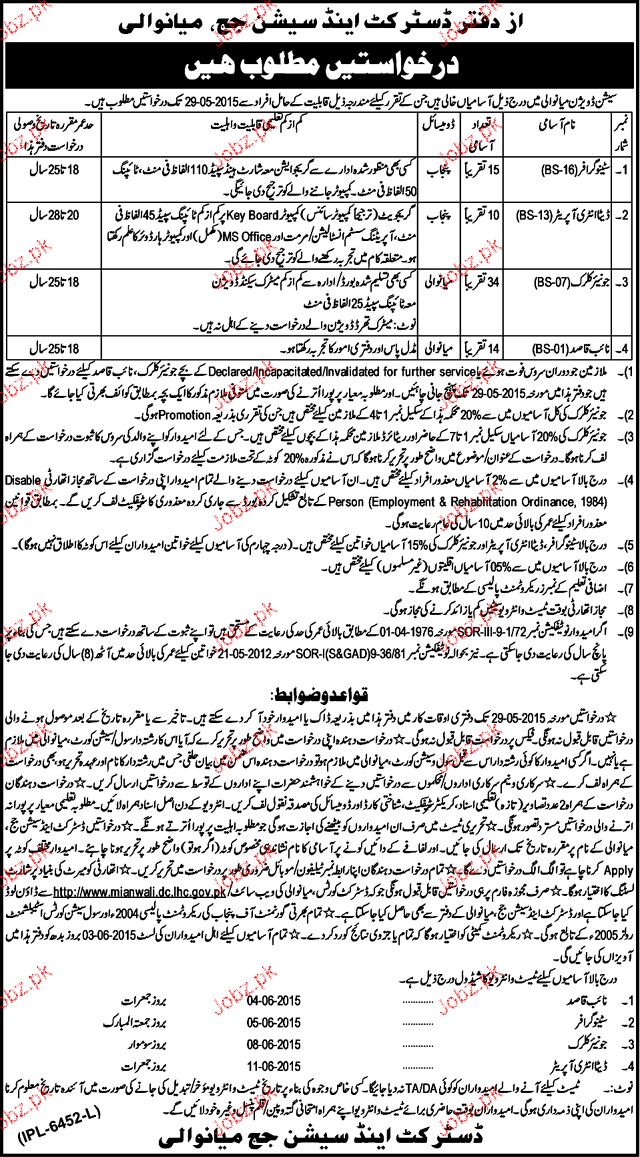 از دفتر ڈسٹرکٹ اینڈ سیشن جج، میانوالی
درخواستیں مطلوب ہیں
سیشن ڈویژن میانوالی میں درج ذیل آسامیاں خالی ہیں جن کے تقرر کیلئے مندرجہ ذیل قابلیت کے حامل افراد سے 29-05-2015 تک درخواستیں مطلوب ہیں۔
نمبر شمار نام آسامی تعداد آسامی ڈومیسائل کم از کم تعلیمی قابلیت و اہلیت حد عمر مقررہ تاریخ وصولی درخواست دفتر ہذا
1۔ سٹینوگرافر (BS-16) 15 تقریباً پنجاب کسی بھی منظور شدہ ادارے سے گریجوایشن معہ شارٹ ہینڈ سپیڈ 110 الفاظ فی منٹ، ٹائپنگ 18 تا 25 سال
50 الفاظ فی منٹ۔ کمپیوٹر جاننے والے کو ترجیح دی جائیگی۔
2۔ ڈیٹا انٹری آپریٹر (BS-13) 10 تقریباً پنجاب گریجویٹ (ترجیحاً کمپیوٹر سائنس) کمپیوٹر Key Board پر کم از کم ٹائپنگ سپیڈ 45 الفاظ فی 20 تا 28 سال
منٹ، آپریٹنگ سسٹم انسٹالیشن/مرمت اور MS Office (مکمل) اور کمپیوٹر ہارڈوئر کا علم رکھتا
ہو۔ متعلقہ کام میں تجربہ رکھنے والے کو ترجیح دی جائے گی۔
3۔ جونیئر کلرک (BS-07) 34 تقریباً میانوالی کسی بھی تسلیم شدہ بورڈ/ادارہ سے کم از کم میٹرک سیکنڈ ڈویژن 18 تا 25 سال
معہ ٹائپنگ سپیڈ 25 الفاظ فی منٹ
نوٹ: میٹرک تھرڈ ڈویژن والے درخواست دینے کے اہل نہ ہیں۔
4۔ نائب قاصد (BS-01) 14 تقریباً میانوالی مڈل پاس اور دفتری امور کا تجربہ رکھتا ہو۔ 18 تا 25 سال
1)۔ ملازمین جو دوران سروس فوت ہوئے یا Declared/Incapacitated/Invalidated for further service کے بچے جونیئر کلرک، نائب قاصد کیلئے درخواستیں دے سکتے
ہیں جو دفتر ہذا میں مورخہ 29-05-2015 تک پہنچ جانی چاہئیں۔ اور مطلوبہ معیار پر پورا اترنے کی صورت میں متوفی ملازم مذکور کا ایک بچہ بمطابق کوائف بھرتی کیا جائے گا۔
2)۔ جونیئر کلرک کی کل آسامیوں میں سے 20% محکمہ ہذا کے سکیل نمبر 1 تا 4 کے ملازمین کیلئے مختص ہیں جن کی تقرری بذریعہ Promotion ہوگی۔
3)۔ جونیئر کلرک کی 20% آسامیاں سکیل نمبر 1 تا 7 کے حاضر اور ریٹائرڈ ملازمین محکمہ ہذا کے بچوں کیلئے مختص ہیں۔ جس کے لئے امیدوار کو اپنے والد کی سروس کا ثبوت درخواست کے ہمراہ
لف کرنا ہوگا۔ درخواست کے عنوان/موضوع میں واضح طور پر تحریر کرنا ہوگا کہ اس نے مذکورہ 20% کوٹہ کے تحت ملازمت کیلئے درخواست گزاری ہے۔
4)۔ درج بالا آسامیوں میں سے 2% آسامیاں معذور افراد کیلئے مختص ہیں۔ ان آسامیوں کیلئے درخواست دینے والے تمام امیدوار اپنی درخواست کے ساتھ مجاز اتھارٹی Disable
Person (Employment & Rehabltitation Ordinance, 1984) کے تابع تشکیل کردہ بورڈ سے جاری کردہ معذوری کا سرٹیفکیٹ لف کریں گے۔ بمطابق قوانین
معذور افراد کیلئے عمر کی بالائی حد میں 10 سال کی عام رعایت ہوگی۔
5)۔ درج بالا سٹینوگرافر، ڈیٹا انٹری آپریٹر اور جونیئر کلرک کی 15% آسامیاں خواتین کیلئے مختص ہیں۔ (درجہ چہارم کی آسامیوں کیلئے خواتین امیدواران کیلئے اس کوٹہ کا اطلاق نہیں ہوگا)۔
6)۔ درج بالا آسامیوں میں سے 05% آسامیاں اقلیتوں (غیر مسلموں) کیلئے مختص ہیں۔
7)۔ اضافی تعلیم کے نمبرز ریکروٹمنٹ پالیسی کے مطابق ہونگے۔
8)۔ مجاز اتھارٹی بوقت ٹیسٹ و انٹرویو سیٹیں کم یا زائد کرنے کی مجاز ہوگی۔
9)۔ اگر امیدوار نوٹیفکیشن نمبر SOR-III-9-1/72 مورخہ 01-04-1976 کے مطابق بالائی عمر کی حد کی رعایت کے مستحق ہیں تو اپنے ثبوت کے ساتھ درخواست دے سکتے ہیں، جس کی بناء پر
پانچ سال کی رعایت دی جا سکتی ہے۔ نیز بحوالہ نوٹیفکیشن نمبر SOR-I(S&GAD)9-36/81 مورخہ 21-05-2012 خواتین کیلئے عمر کی بالائی حد میں آٹھ (8) سال کی رعایت دی جا سکتی
ہے۔
قواعد و ضوابط:
☆ درخواستیں مورخہ 29-05-2015 تک دفتری اوقات کار میں دفتر ہذا میں بذریعہ ڈاک یا امیدوار خود آ کر دے سکتے ہیں۔ تاخیر سے یا مقررہ تاریخ کے بعد موصول ہونے والی
درخواستیں قابل قبول نہ ہونگی۔ فیکس پر درخواست قابل قبول نہ ہوگی۔ ☆ درخواست دہندہ اپنی درخواست میں واضح طور پر تحریر کرے کہ آیا اس کا رشتہ دار سول/سیشن کورٹ، میانوالی میں ملازم
ہے یا نہیں۔ اگر کسی امیدوار کا کوئی رشتہ دار اس سے قبل سول/سیشن کورٹ، میانوالی میں ملازم ہو تو درخواست دہندہ اس ضمن میں بیان حلفی جس میں رشتہ دار کا نام اور عہدہ تحریر ہو بھی درخواست
کے ہمراہ لف کرے۔ ☆ سرکاری و نیم سرکاری اداروں/محکموں سے درخواستیں دینے کے خواہشمند حضرات اپنے اداروں کے توسط سے درخواستیں ارسال کریں۔ ☆ درخواست دہندگان
درخواست کے ہمراہ 2 عدد تصاویر (تازہ) تعلیمی اسناد، کریکٹر سرٹیفکیٹ، شناختی کارڈ اور ڈومیسائل کی مصدقہ نقول لف کریں۔ انٹرویو کے دن اصل اسناد ہمراہ لائیں۔ مطلوبہ تعلیمی معیار پر پورا نہ
اترنے والی درخواستیں مسترد تصور ہونگی۔ ☆ تحریری ٹیسٹ میں صرف ان امیدواروں کو بیٹھنے کی اجازت ہوگی جو مطلوبہ اہلیت پر پورا اترتے ہونگے۔ ☆ درخواستیں ڈسٹرکٹ اینڈ سیشن جج،
میانوالی کے نام پر مقررہ تاریخ تک ارسال کی جائیں۔ اور لفافے کے دائیں کونے پر آسامی کا نام نشاندہی مخصوص کوٹہ (اگر ہو تو) واضح طور پر تحریر ہونا چاہیے۔ امیدوار مختلف کوٹہ پر
Apply کرنا چاہے تو الگ الگ درخواستیں دے گا۔ ☆ تمام درخواست دہندگان اپنا رابطہ نمبر ٹیلیفون/موبائل ضروری طور پر درخواست میں تحریر کریں۔ ☆ اتھارٹی کو میرٹ کی بنیاد پر شارٹ
لسٹنگ کا اختیار ہوگا۔ ☆ صرف مجوزہ فارم پر ہی درخواستیں قابل قبول ہونگی جو کہ ڈسٹرکٹ کورٹس، میانوالی کی ویب سائٹ http://www.mianwali.dc.lhc.gov.pk/ سے ڈاؤن لوڈ
کیا جا سکتا ہے اور ڈسٹرکٹ اینڈ سیشن جج، میانوالی کے دفتر سے بھی حاصل کیا جا سکتا ہے۔ ☆ تمام بھرتی گورنمنٹ آف پنجاب کی ریکروٹمنٹ پالیسی 2004ء اور سول سیشن کورٹس اسٹیبلشمنٹ
رولز 2005ء کے تابع ہوگی۔ ☆ ریکروٹمنٹ کمیٹی کو اختیار ہوگا کہ تمام یا جزوی نتائج کو رد کر دے۔ ☆ تمام آسامیوں کیلئے اہل امیدواران کی لسٹ 03-06-2015 بروز بدھ کو دفتر ہذا میں
آویزاں کی جائیں گی۔
درج بالا آسامیوں کیلئے ٹیسٹ و انٹرویو کا شیڈول درج ذیل ہے۔
1۔ نائب قاصد ............ 04-06-2015 بروز جمعرات
2۔ سٹینوگرافر ............ 05-06-2015 بروز جمعتہ المبارک
3۔ جونیئر کلرک ............ 08-06-2015 بروز سوموار
4۔ ڈیٹا انٹری آپریٹر ............ 11-06-2015 بروز جمعرات
نوٹ:۔ ٹیسٹ کیلئے آنے والے امیدواران کو کوئی TA/DA نہ دیا جائیگا۔ کسی خاص وجوہ کی بناء پر تاریخ ٹیسٹ و انٹرویو مؤخر/تبدیل کی جانے کی صورت میں آئندہ تاریخ معلوم کرنا
امیدواران کی اپنی ذمہ داری ہوگی۔ امیدواران بوقت حاضری برائے ٹیسٹ و انٹرویو اپنے ہمراہ امتحانی گتہ و پین/قلم پنسل وغیرہ خود لائیں گے۔
ڈسٹرکٹ اینڈ سیشن جج میانوالی
(IPL-6452-L)
Jobz.pk